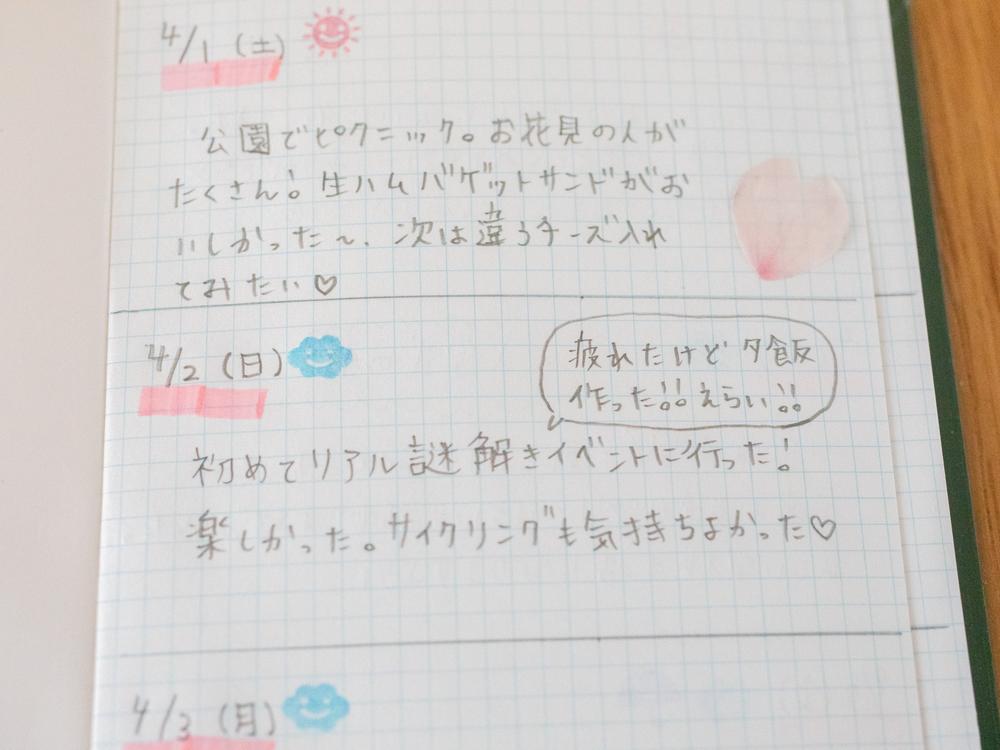 4/1(土)
公園でピクニック。お花見の人が
たくさん!生ハムバゲットサンドがお
いしかった〜。次は違うチーズ入れ
てみたい♡
4/2(日)
疲れたけど夕飯
作った!!えらい!!
初めてリアル謎解きイベントに行った!
楽しかった。サイクリングも気持ちよかった♡
4/3(月)